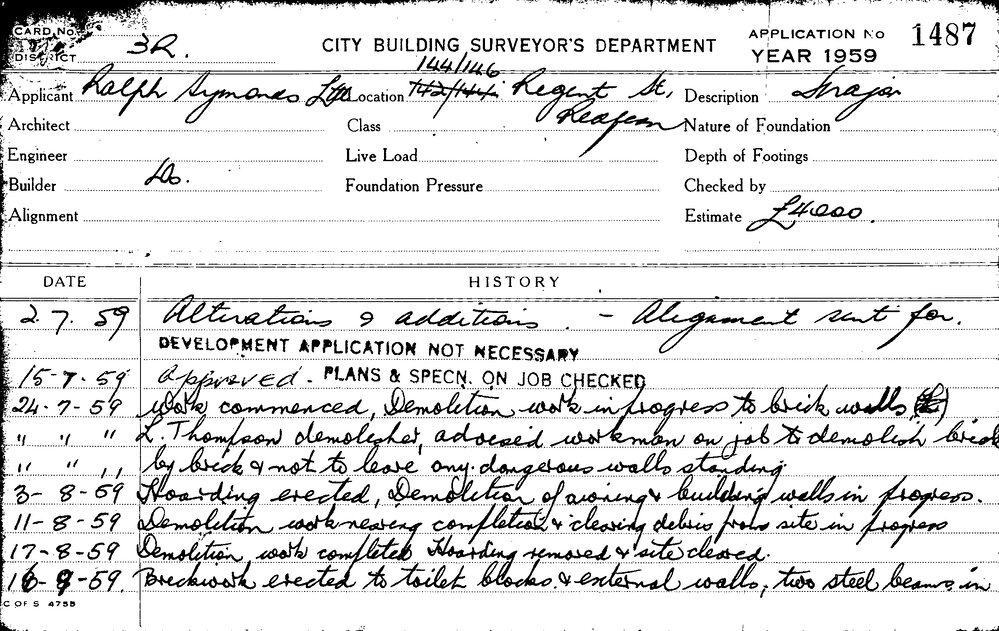 CARD No
DISTRICT 3R.
CITY BUILDING SURVEYOR'S DEPARTMENT
APPLICATION No 1487
YEAR 1959
144/146
Applicant Ralph Symonds Ltd Location 142/144 Regent St, Redfern
Description
Architect
Class
Nature of Foundation
Engineer
Live Load
Depth of Footings
Builder Do.
Foundation Pressure
Checked by
Alignment
Estimate £4000.
DATE HISTORY
2.7.59 Alterations & additions. - Alignment sent for.
DEVELOPMENT APPLICATION NOT NECESSARY
15-7-59 Approved. PLANS & SPECN. ON JOB CHECKED
24-7-59 Work commenced, Demolition work in progress to brick walls
" " " L. Thompson demolisher, advised workman on job to demolish brick
" " " by brick & not to leave any dangerous walls standing.
3-8-59 Hoarding erected, Demolition of awning & building walls in progress.
11-8-59 Demolition work nearing completion & clearing debris from site in progress
17-8-59 Demolition work completed Hoarding removed & site cleared.
16-9-59. Brickwork erected to toilet blocks & external walls, two steel beams in
C OF S 4755